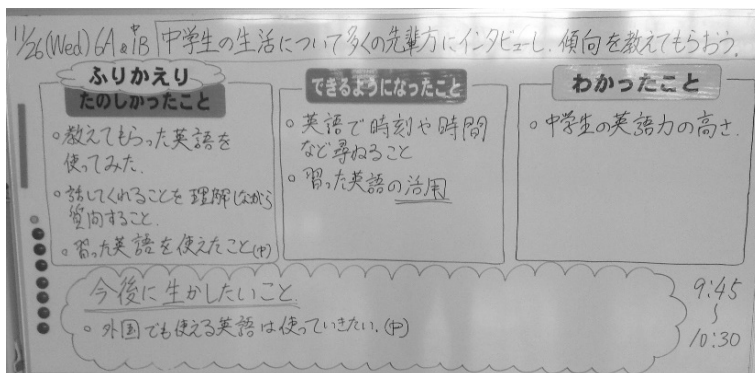 11/26(Wed) 6A & 中1B 中学生の生活について多くの先輩方にインタビューし、傾向を教えてもらおう。
ふりかえり
たのしかったこと
。教えてもらった英語を
使ってみた.
。話してくれることを理解しながら
質問すること.
。習った英語を使えたこと(中)
できるようになったこと
。英語で時刻や時間
など尋ねること
。習った英語の活用
わかったこと
。中学生の英語力の高さ.
今後に生かしたいこと
。外国でも使える英語は使っていきたい.(中)
9:45
〜
10:30